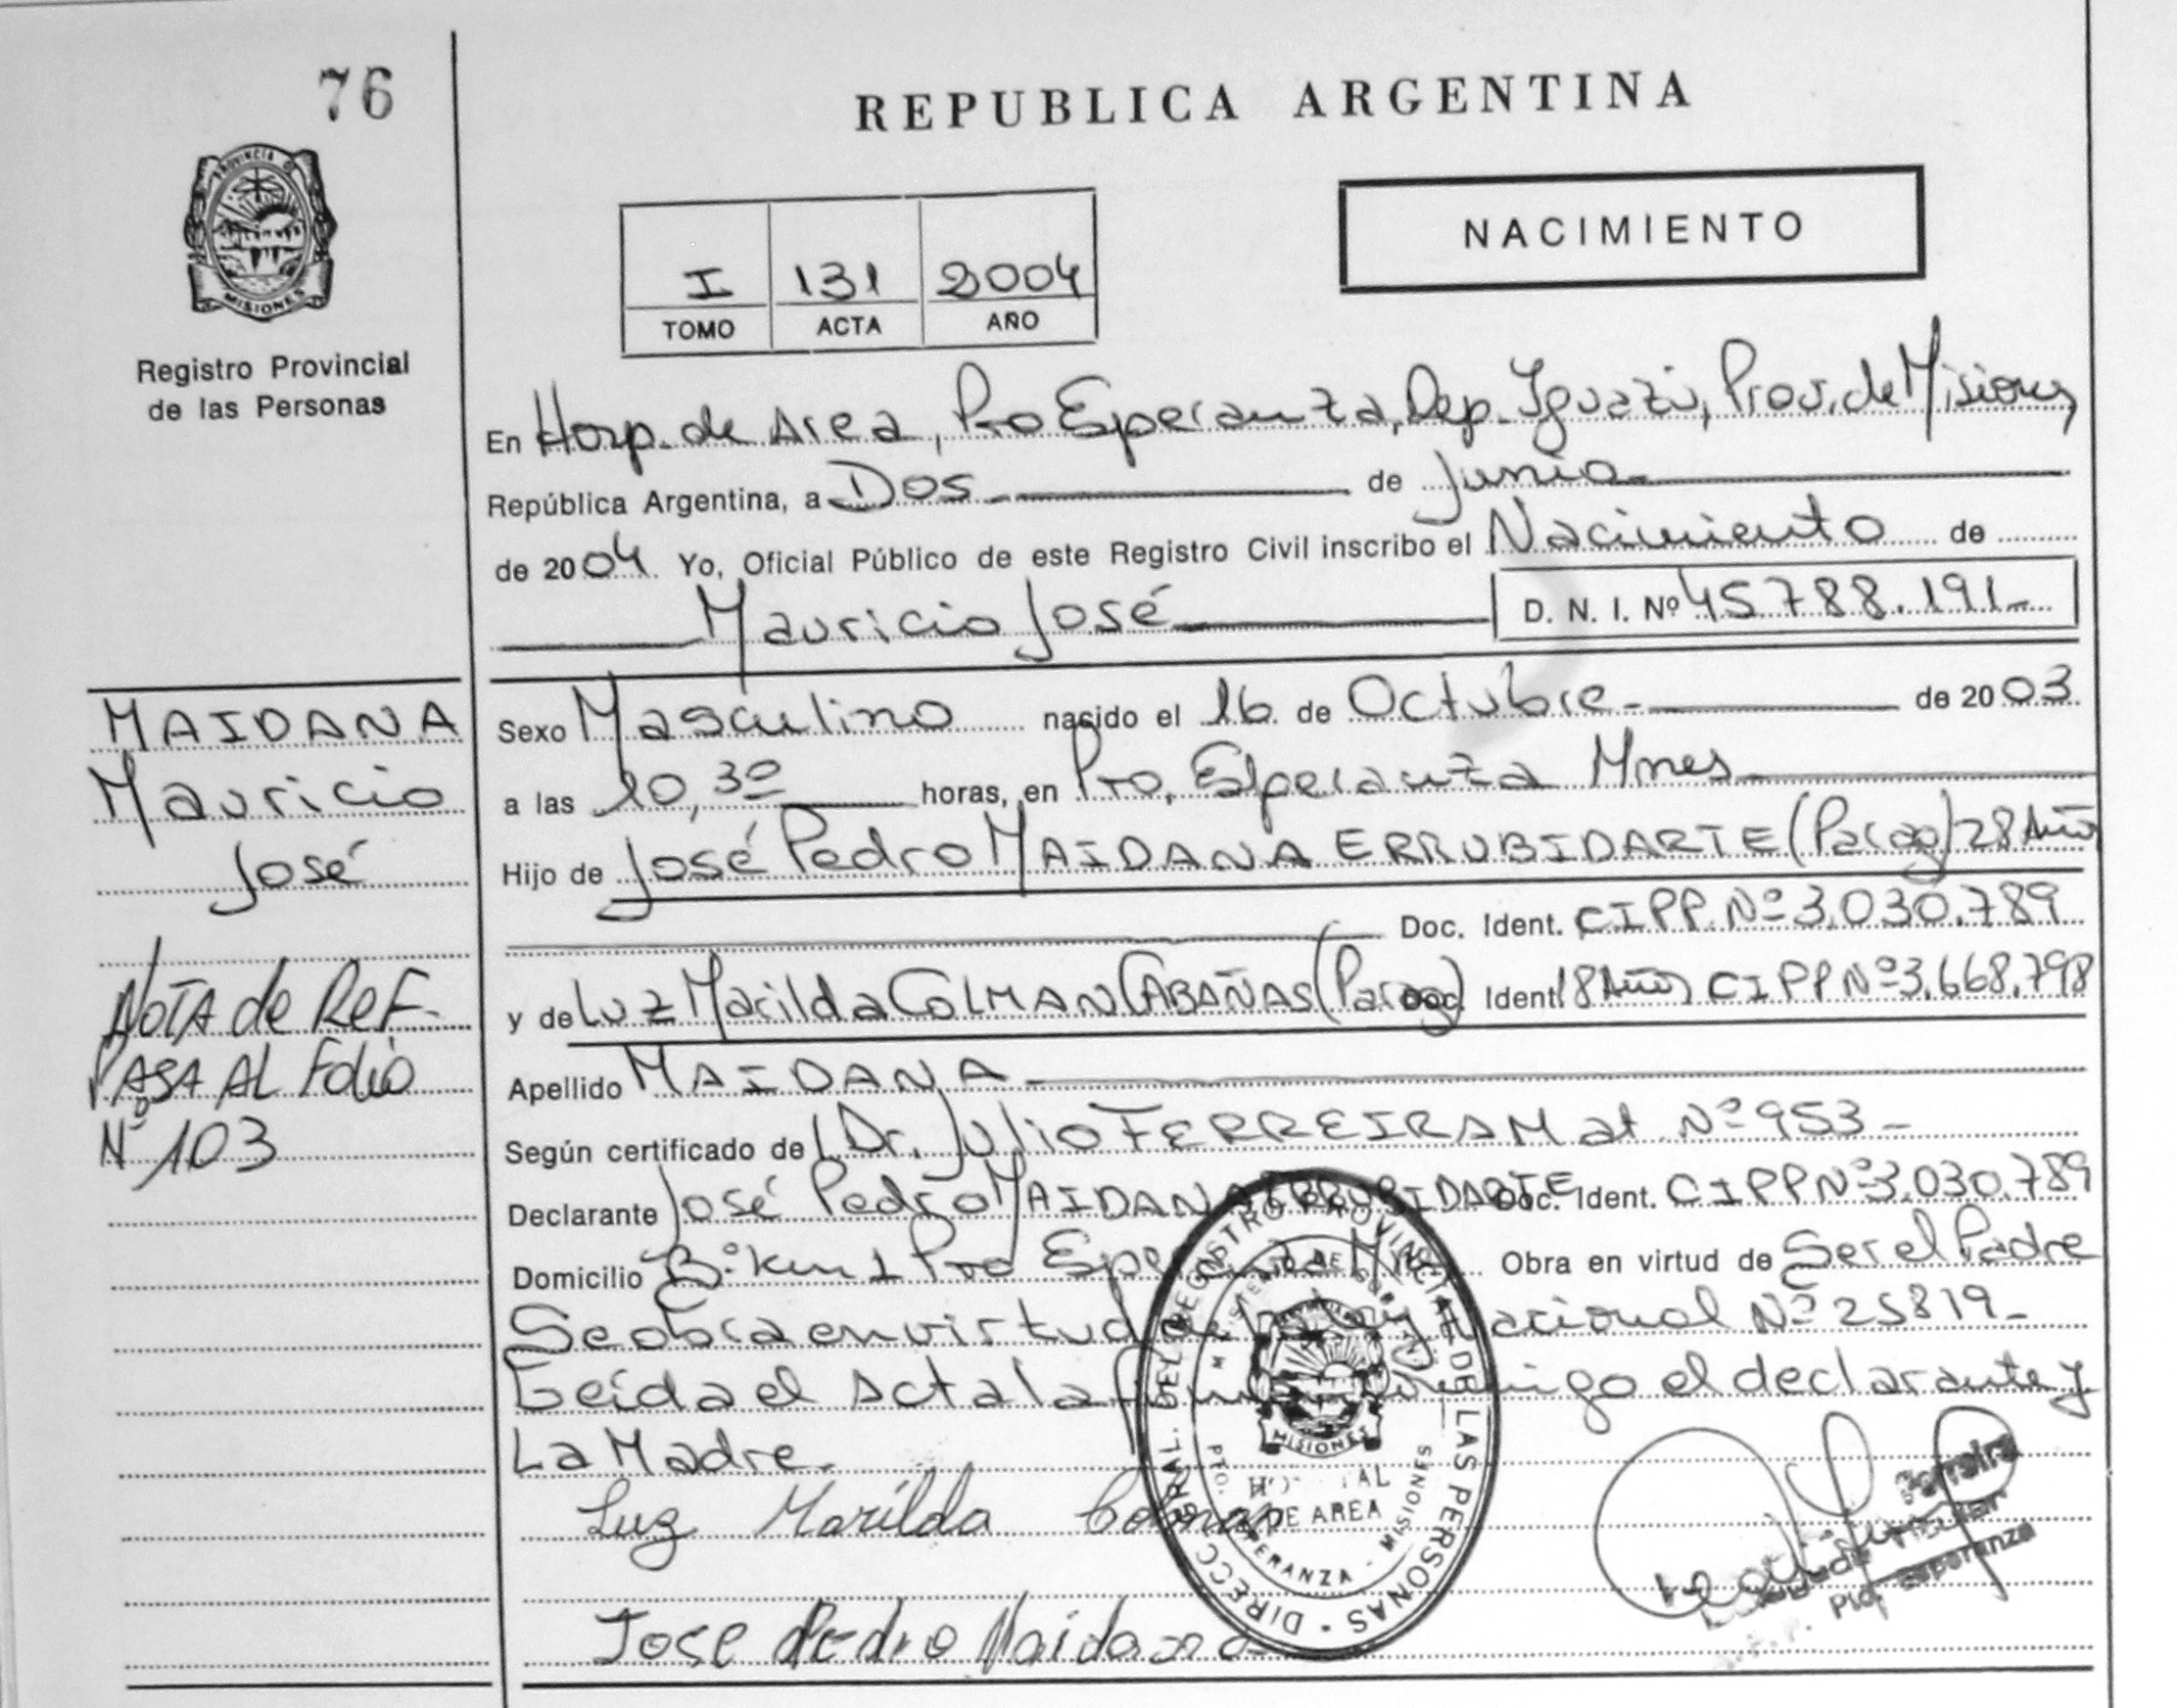 76
REPUBLICA ARGENTINA
PROVINCIA D
MISIONES
Registro Provincial
de las Personas
I 131 2004
TOMO ACTA AÑO
NACIMIENTO
En Hosp. de Area, Pto Esperanza, Dep. Iguazú, Prov. de Misiones
República Argentina, a Dos de junio
de 2004 Yo, Oficial Público de este Registro Civil inscribo el Nacimiento de
Mauricio José D. N. I. Nº 45788.191-
MAIDANA
Mauricio
José
NOTA de ReF-
PASA AL Folio
Nº 103
Sexo Masculino nacido el 16 de Octubre- de 2003
a las 10,30 horas, en Pto. Esperanza Mnes-
Hijo de José Pedro MAIDANA ERRUBIDARTE (Parag) 28 Años
Doc. Ident. CIPP. Nº 3.030.789
y de Luz Marilda COLMAN CABAÑAS (Parag) Doc. Ident. 18 Años CIPP Nº 3.668.798
Apellido MAIDANA-
Según certificado de Dr. Julio FERREIRA Mat Nº 953-
Declarante José Pedro MAIDANA ERRUBIDARTE Doc. Ident. CIPP Nº 3.030.789
Domicilio Bº km 1 Pto Esperanza Mnes Obra en virtud de Ser el Padre
Se obra en virtud de la Ley Nacional Nº 25819-
Leída el Acta la firma conmigo el declarante y
La Madre.
Luz Marilda Colman
Jose Pedro Maidana
DIRECC. GRAL. DEL REGISTRO PROVINCIAL DE LAS PERSONAS
MISIONES
DE AREA
PTO. ESPERANZA - MISIONES
Ferreira
Pto. Esperanza